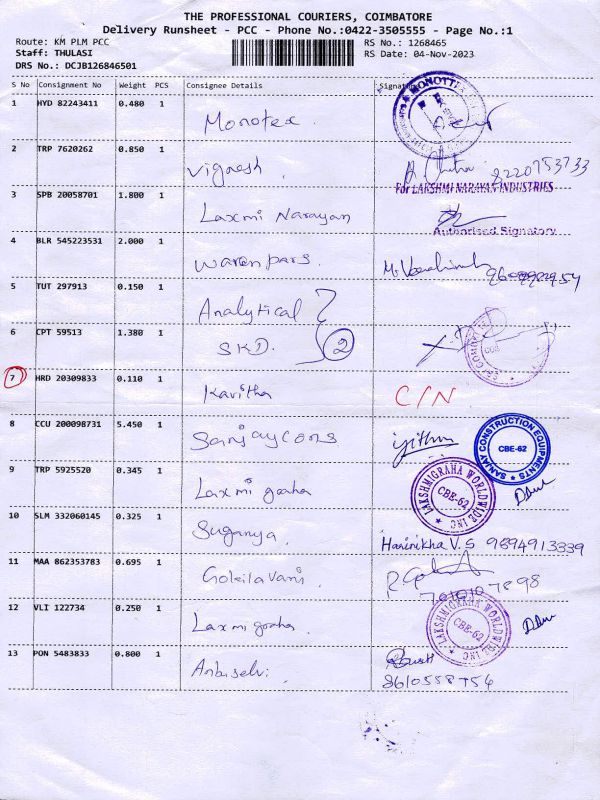 THE PROFESSIONAL COURIERS, COIMBATORE
Delivery Runsheet - PCC - Phone No.:0422-3505555 - Page No.:1
Route: KM PLM PCC
RS No.: 1268465
Staff: THULASI
RS Date: 04-Nov-2023
DRS No.: DCJB126846501
S No Consignment No Weight PCS Consignee Details Signature
1 HYD 82243411 0.480 1 Monotex
2 TRP 7620262 0.850 1 Vignesh. 8220753733
For LAKSHMI NARAYAN INDUSTRIES
3 SPB 20058701 1.800 1 Laxmi Narayan
Authorised Signatory
4 BLR 545223531 2.000 1 Waren pars.
5 TUT 297913 0.150 1 Analytical
6 CPT 59513 1.380 1 SKD. 2
7 HRD 20309833 0.110 1 Kavitha C/N
8 CCU 200098731 5.450 1 Sanjay cons
SANJAY CONSTRUCTION EQUIPMENTS
CBE-62
9 TRP 5925520 0.345 1 Laxmi graha
LAKSHMIGRAHA WORLDWIDE INC
CBE-62
10 SLM 332060145 0.325 1 Suganya. Harinikha V.S 9894913839
11 MAA 862353783 0.695 1 Gokilavani
7010107898
12 VLI 122734 0.250 1 Laxmi graha
LAKSHMIGRAHA WORLDWIDE INC
CBE-62
13 PON 5483833 0.800 1 Anbuselvi
8610558754